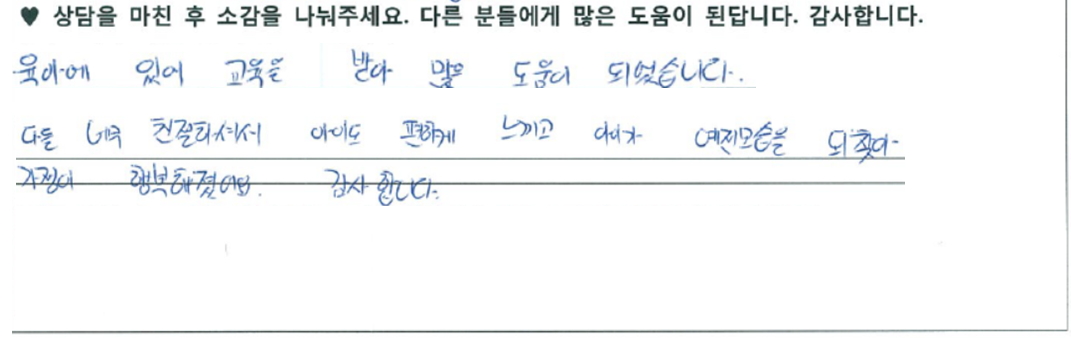 ♥ 상담을 마친 후 소감을 나눠주세요. 다른 분들에게 많은 도움이 된답니다. 감사합니다.
육아에 있어 교육을 받아 많은 도움이 되었습니다.
다들 너무 친절하셔서 아이도 편하게 느끼고 아이가 예전모습을 되찾아
가정이 행복해졌어요. 감사합니다.